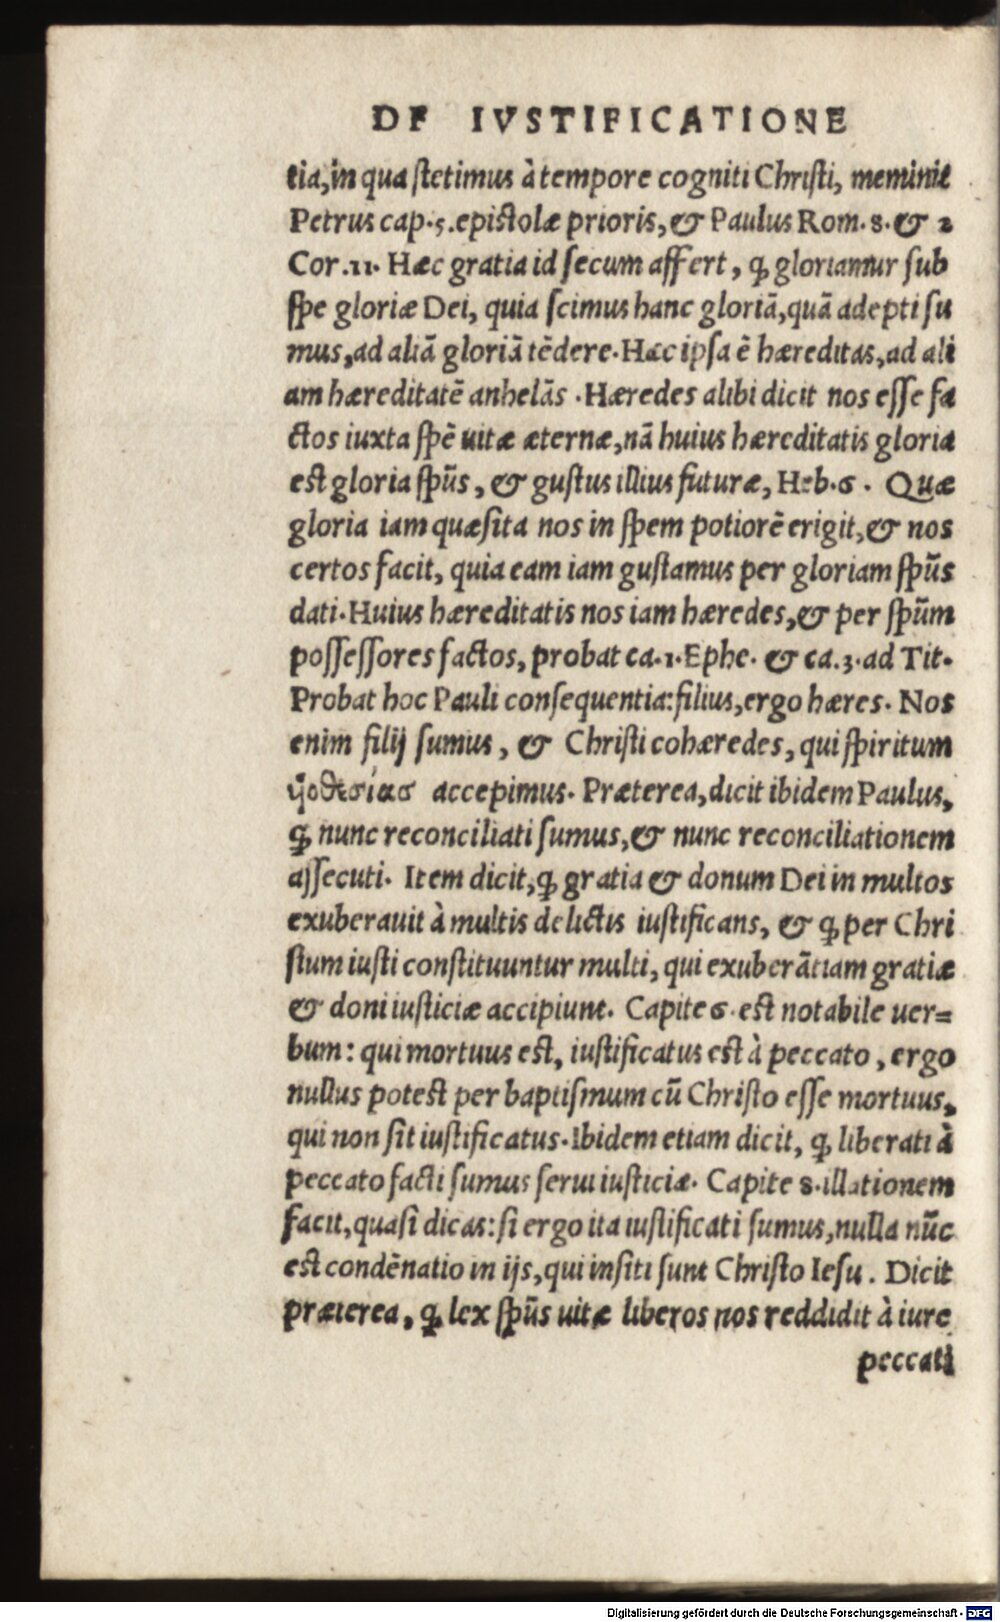 DE IVSTIFICATIONE
tia, in qua stetimus à tempore cogniti Christi, meminit
Petrus cap.5. epistolæ prioris, & Paulus Rom. 8. & 2
Cor. 11. Hæc gratia id secum affert, ꝙ gloriamur sub
spe gloriæ Dei, quia scimus hanc gloriā, quā adepti su
mus, ad aliā gloriā tēdere. Hæc ipsa ē hæreditas, ad ali
am hæreditatē anhelās. Hæredes alibi dicit nos esse fa
ctos iuxta spē uitæ æternæ, nā huius hæreditatis gloria
est gloria spūs, & gustus illius futuræ, Heb. 6. Quæ
gloria iam quæsita nos in spem potiorē erigit, & nos
certos facit, quia eam iam gustamus per gloriam spūs
dati. Huius hæreditatis nos iam hæredes, & per spūm
possessores factos, probat ca. 1. Ephe. & ca. 3. ad Tit.
Probat hoc Pauli consequentia: filius, ergo hæres. Nos
enim filij sumus, & Christi cohæredes, qui spiritum
ὑοθεσίας accepimus. Præterea, dicit ibidem Paulus,
ꝙ nunc reconciliati sumus, & nunc reconciliationem
assecuti. Item dicit, ꝙ gratia & donum Dei in multos
exuberauit à multis delictis iustificans, & ꝙ per Chri
stum iusti constituuntur multi, qui exuberātiam gratiæ
& doni iusticiæ accipiunt. Capite 6. est notabile uer=
bum: qui mortuus est, iustificatus est à peccato, ergo
nullus potest per baptismum cū Christo esse mortuus,
qui non sit iustificatus. Ibidem etiam dicit, ꝙ liberati à
peccato facti sumus serui iusticiæ. Capite 8. illationem
facit, quasi dicas: si ergo ita iustificati sumus, nulla nūc
est condēnatio in ijs, qui insiti sunt Christo Iesu. Dicit
præterea, ꝙ lex spūs uitæ liberos nos reddidit à iure
peccati
Digitalisierung gefördert durch die Deutsche Forschungsgemeinschaft - DFG